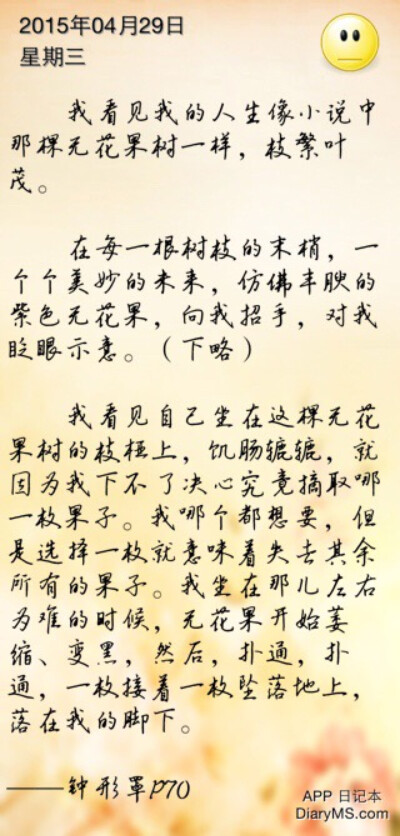 2015年04月29日
星期三
我看见我的人生像小说中
那棵无花果树一样，枝繁叶
茂。
在每一根树枝的末梢，一
个个美妙的未来，仿佛丰腴的
紫色无花果，向我招手，对我
眨眼示意。（下略）
我看见自己坐在这棵无花
果树的枝桠上，饥肠辘辘，就
因为我下不了决心究竟摘取哪
一枚果子。我哪个都想要，但
是选择一枚就意味着失去其余
所有的果子。我坐在那儿左右
为难的时候，无花果开始萎
缩、变黑，然后，扑通，扑
通，一枚接着一枚坠落地上，
落在我的脚下。
——钟形罩P70
APP 日记本
DiaryMS.com